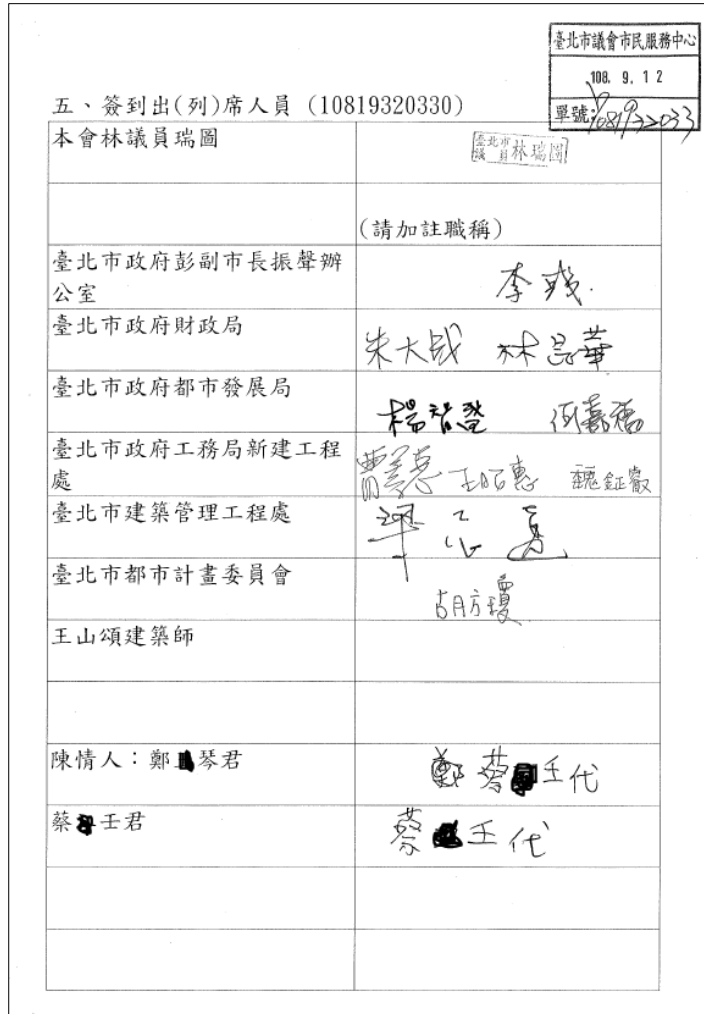 臺北市議會市民服務中心
108. 9. 12
單號:10819322033
五、簽到出(列)席人員 (10819320330)
本會林議員瑞圖
臺北市議員 林瑞圖
(請加註職稱)
臺北市政府彭副市長振聲辦公室
李
臺北市政府財政局
朱大成 林昆華
臺北市政府都市發展局
楊智盛 何嘉
臺北市政府工務局新建工程處
曹 惠 王昭惠 魏鉦叡
臺北市建築管理工程處
臺北市都市計畫委員會
胡方瓊
王山頌建築師
陳情人:鄭 琴君
鄭 蔡 壬代
蔡 壬君
蔡 壬代